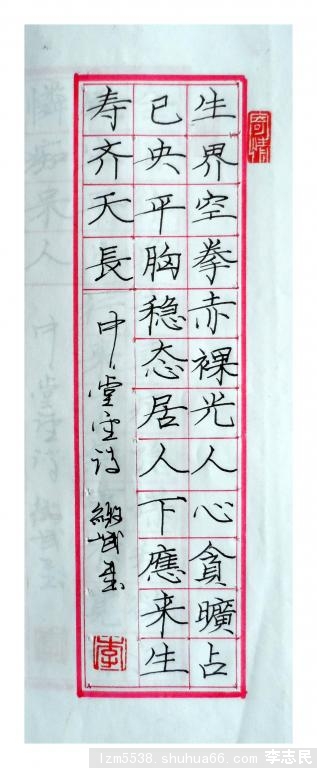 奇情
生界空拳赤裸光人心貪曠占
已央平胸稳态居人下應来生
寿齐天長
中堂 诗
李
lzm5538.shuhua66.com 李志民